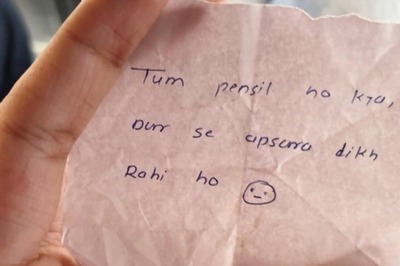 Tum pensil ho kya,
Durr se apsara dikh
Rahi ho